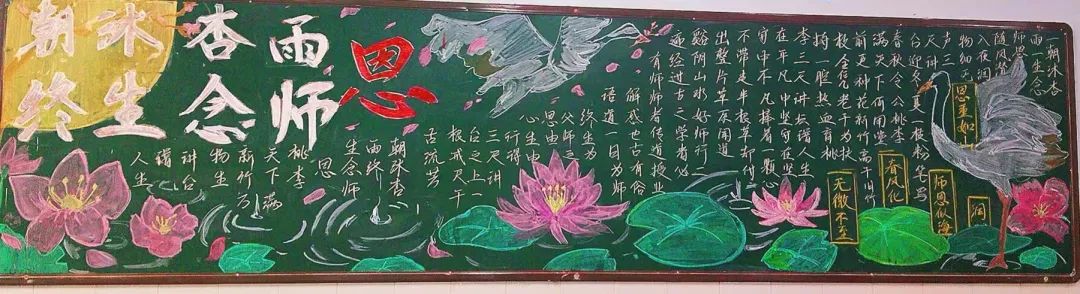 朝沐杏雨
终生念师恩
一朝沐杏
雨一生念
师恩
随风潜
入夜润
物细无
声三
尺讲
台迎冬夏一根粉笔写
春秋令公桃李
满天下何用堂
前更种花新竹高于旧竹
枝全凭老干为扶
持一腔热血育桃
李三尺讲坛谱人生
在平凡中坚守在坚
守中不凡捧着一颗心
不带走半根草却付
出整片草原闻道
谿阴山水好师行一
遍经进古之学者必
有师师者传道授业
解惑也古有俗
语道一日为师
终生为
父师之
恩由
心生中
行得
三尺讲
台之上一
根戒尺千
古流芳
朝沐杏
雨终
生念师
恩
桃李
满天下
新竹万
物生
讲台
谱
人生
恩重如
春风化
师恩似海
润
无微不至